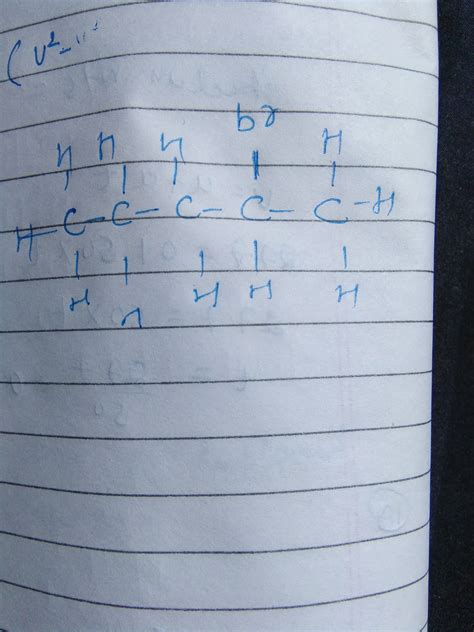 br
H H H H
H-C-C-C-C-C-H
H H H H H